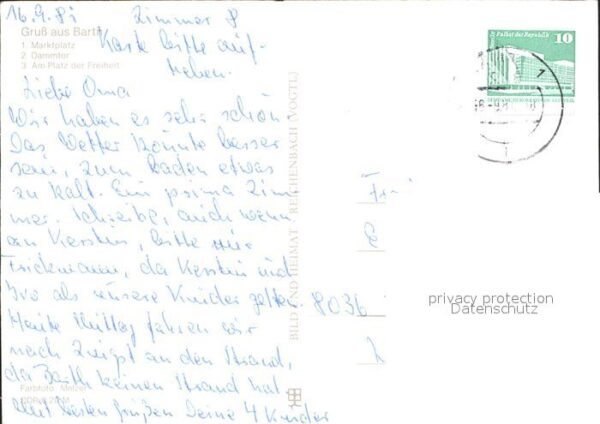 16.9.81 Zimmer 8
Gruß aus Barth
1. Marktplatz
2. Dammtor
3. Am Platz der Freiheit
Karte bitte auf-
heben.
Liebe Oma
Wir haben es sehr schön
Das Wetter könnte besser
sein, zum Baden etwas
zu kalt. Ein prima Zim-
mer. Schreibe, auch wenn
an Kerstin, bitte nur
Frickmann, da Kerstin und
Ivo als unsere Kinder gelten.
Heute Mittag fahren wir
nach Zingst an den Strand,
da Barth keinen Strand hat
Am besten grüßen Deine 4 Kinder
Farbfoto: Melzer
BILD UND HEIMAT REICHENBACH (VOGTL.)
Palast der Republik
10
8036
privacy protection
Datenschutz